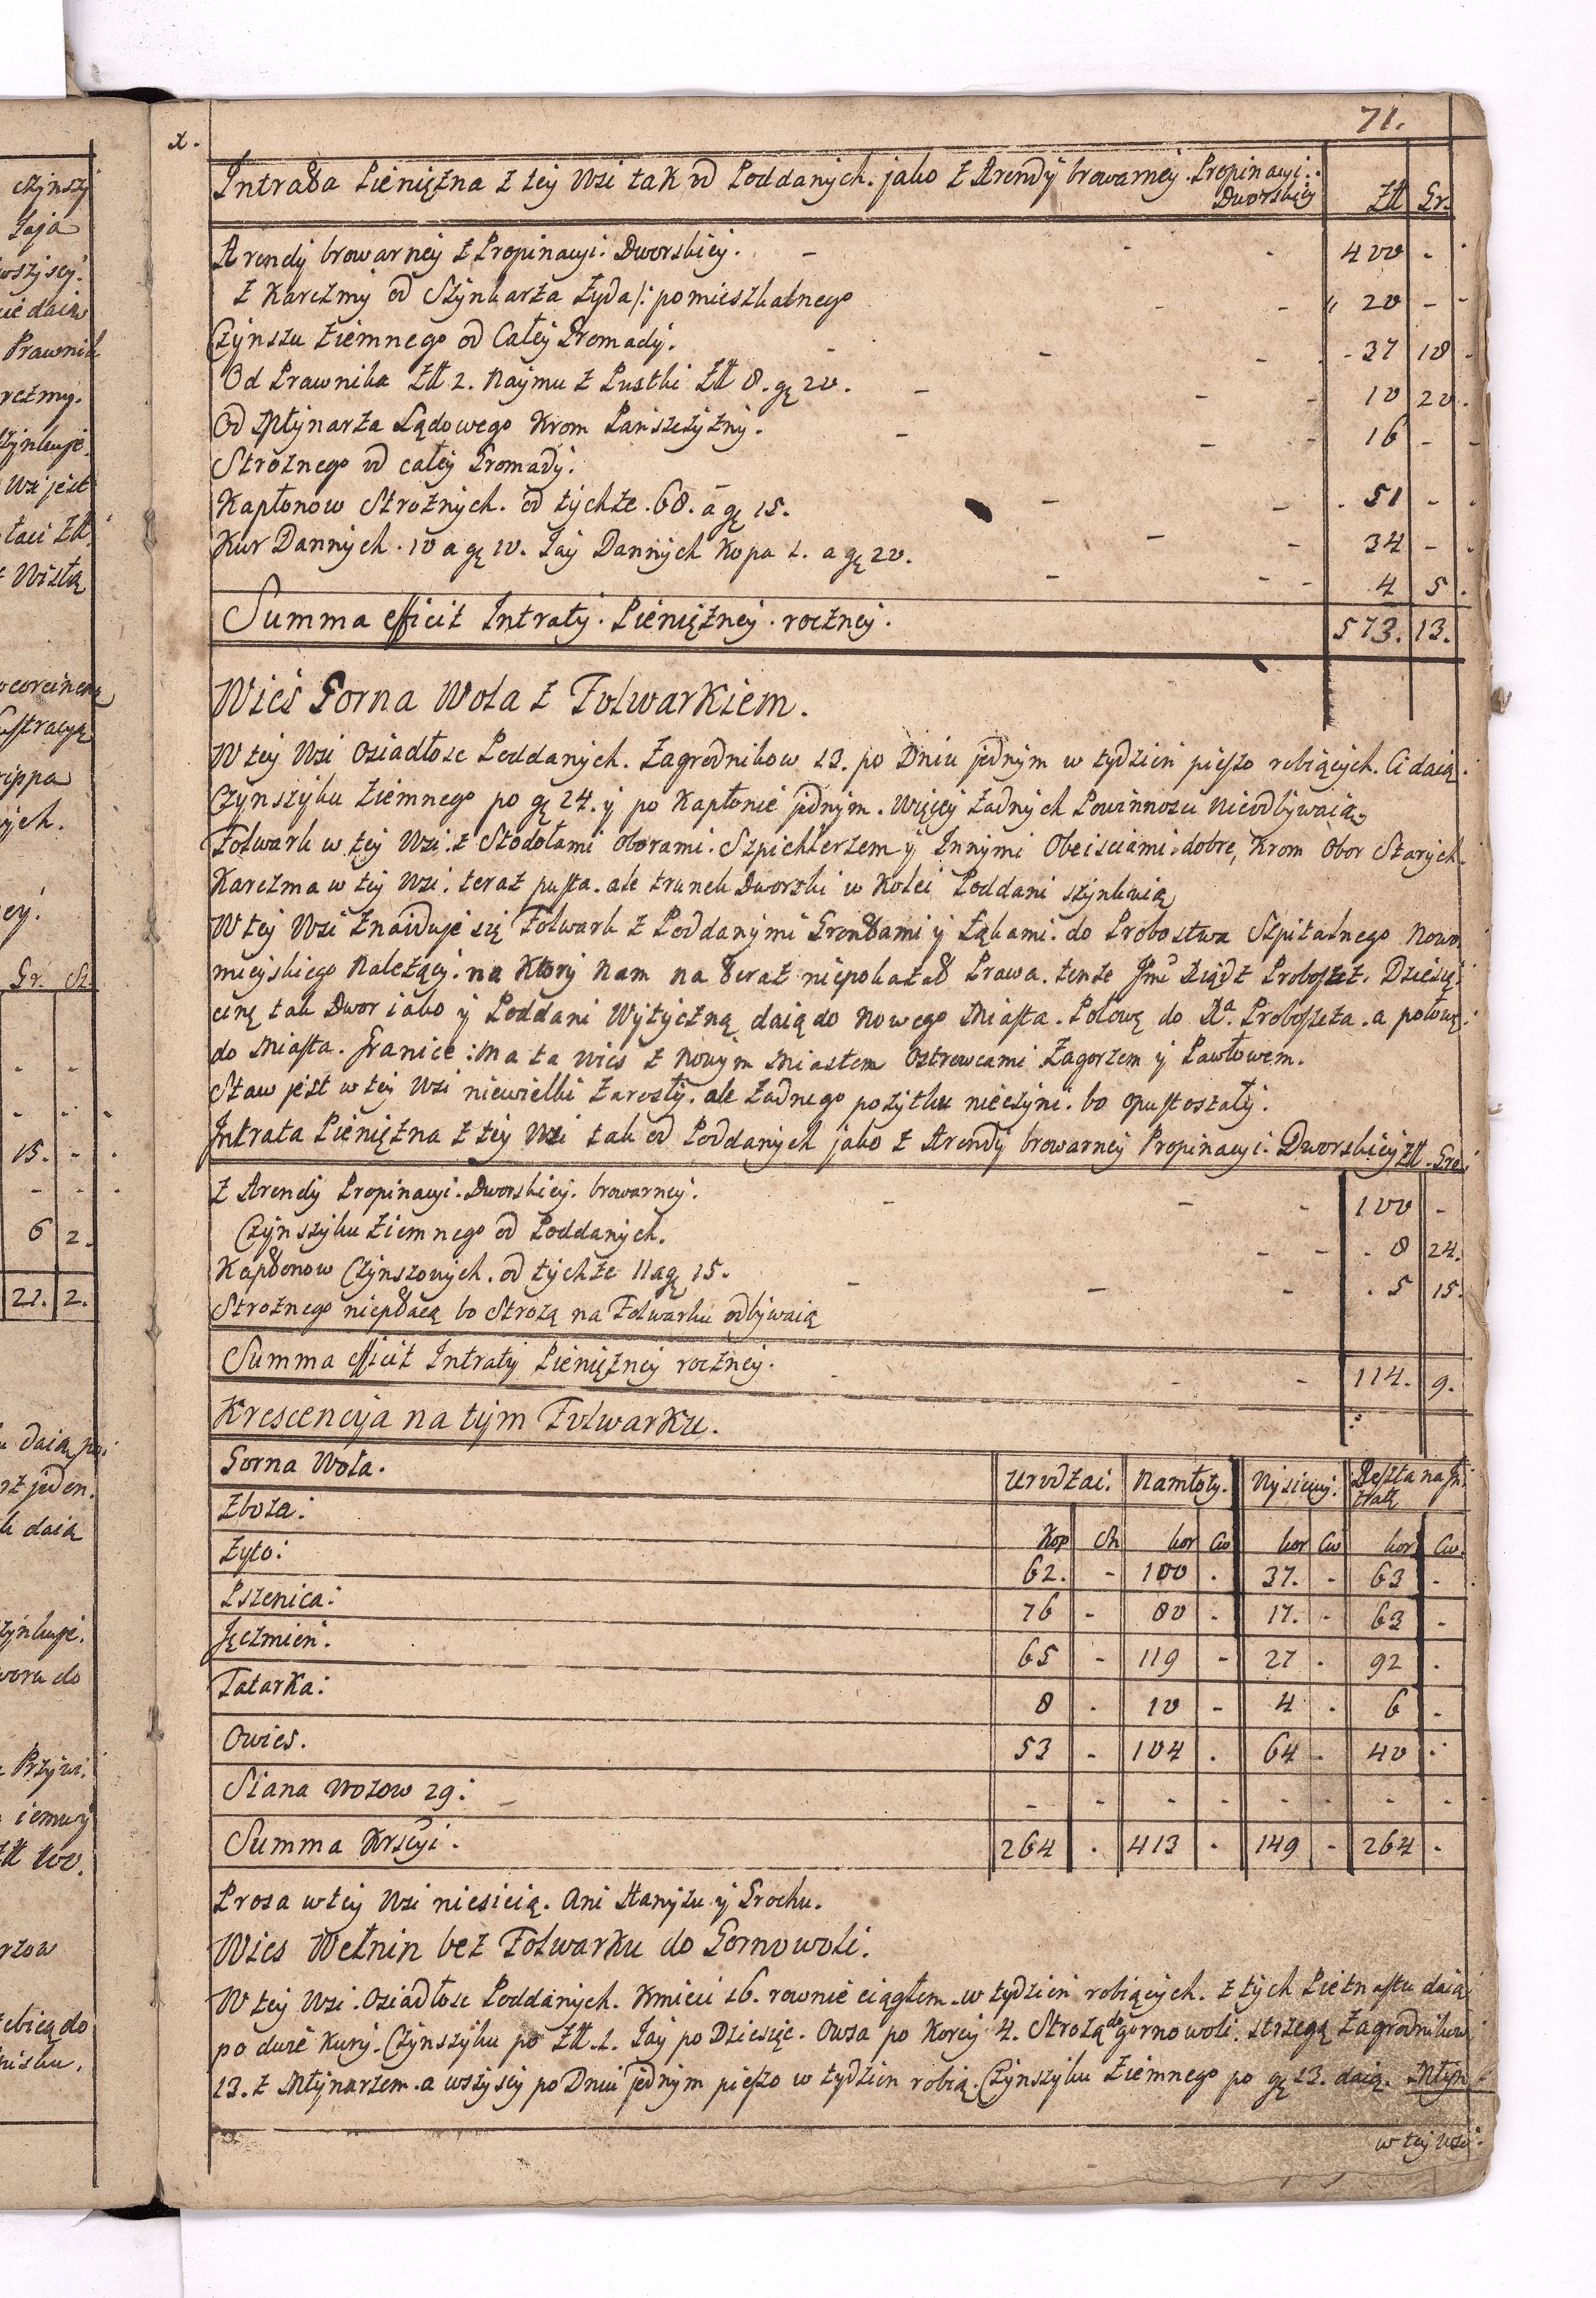 71.
x.
Intrata Pieniężna z tey Wsi tak od Poddanych. jako z Arendy browarney. Propinacyi.
Dworskiey Złt Gr.
Arendy browarney z Propinacyi. Dworskiey. - - - 400 -
z Karczmy od Szynkarza Żyda /: pomieszkalnego - - 20 - -
Czynszu Ziemnego od Całey Gromady. - - - 37 18
Od Prawnika Złt 2. Naymu z Pustki Złt 8. gę 20. - - - 10 20.
Od Młynarza Lądowego Krom Panszczyzny. - - - 16 - -
Strożnego od całey Gromady. - - - 51 - -
Kapłonow Strożnych. od tychże. 68. a gę 15. - - 34 - -
Kur Dannych. 10 a gę 10. Jay Dannych Kopa 1. a gę 20. - - - 4 5.
Summa efficit Intraty. Pieniężney. roczney. 573. 13.
Wieś Gorna Wola z Folwarkiem.
W tey Wsi Osiadłosc Poddanych. Zagrodnikow 13. po Dniu jednym w tydzien pieszo robiących. Ci daią.
Czynszyku Ziemnego po gę 24. y po Kapłonie jednym. Więcey żadnych Powinnozci nieodbywaią.
Folwark w tey Wsi. z Stodołami Oborami. Szpichlerzem y Innymi Obeisciami. dobre, Krom Obor Starych.
Karczma w tey Wsi. teraz pusta. ale trunek Dworski w Kolei Poddani szynkuią
W tey Wsi Znaiduje się Folwark z Poddanymi Gruntami y Łąkami. do Probostwa Szpitalnego Nowo
mieyskiego Należący. na Ktory Nam na teraz niepokazał Prawa. tenże Jmć Xiądz Proboszcz. Dziesię
cinę tak Dwor iako y Poddani Wytyczną daią do Nowego Miasta. Połowę do Xa. Proboszcza. a połowę
do Miasta. Granice: Ma ta Wies z Nowym Miastem Ostrowcami Zagorzem y Pawłowem.
Staw jest w tey Wsi niewielki Zarosły. ale żadnego pozytku nieczyni. bo opustoszały.
Intrata Pieniężna z tey Wsi tak od Poddanych jako z Arendy browarney Propinacyi. Dworskiey Złt. Gro.
z Arendy Propinacyi. Dworskiey. browarney. - - - 100 -
Czynszyku Ziemnego od Poddanych. - - 8 24.
Kapłonow Czynszowych. od tychże 11 a gę 15. - - - 5 15.
Strożnego niepłacą bo Strożą na Folwarku odbywaią
Summa efficit Intraty Pieniężney roczney. - - - 114. 9.
Krescencyja na tym Folwarku.
Gorna Wola. Urodzai. Namłoty. Wysiewy. Reszta na In:
tratę
Zboża: Kop Sn kor Cw kor Cw kor Cw.
Zyto: 62. - 100 . 37. - 63 -
Pszenica: 76 - 80 - 17. - 63 -
Jęczmien: 65 - 119 - 27 . 92 .
Tatarka: 8 . 10 - 4 . 6 -
Owies. 53 - 104 . 64 - 40 .
Siana Wozow 29: - - - - - - - - -
Summa Krscyi. 264 . 413 . 149 - 264 .
Prosa w tey Wsi niesieią. Ani Hanyżu y Grochu.
Wies Wełnin bez Folwarku do Gornowoli.
W tey Wsi. Osiadłosc Poddanych. Kmieci 16. rownie ciągłem. w tydzien robiących. z tych Pietnastu daią
po dwie Kury. Czynszyku po Złt. 1. Jay po Dziesięc. Owsa po Korcy 4. Strożą do gornowoli. strzegą Zagrodnikow
13. z Młynarzem. a wszyscy po Dniu jednym pieszo w tydzien robią. Czynszyku Ziemnego po gę 13. daią. Młyn
w tey Wsi.